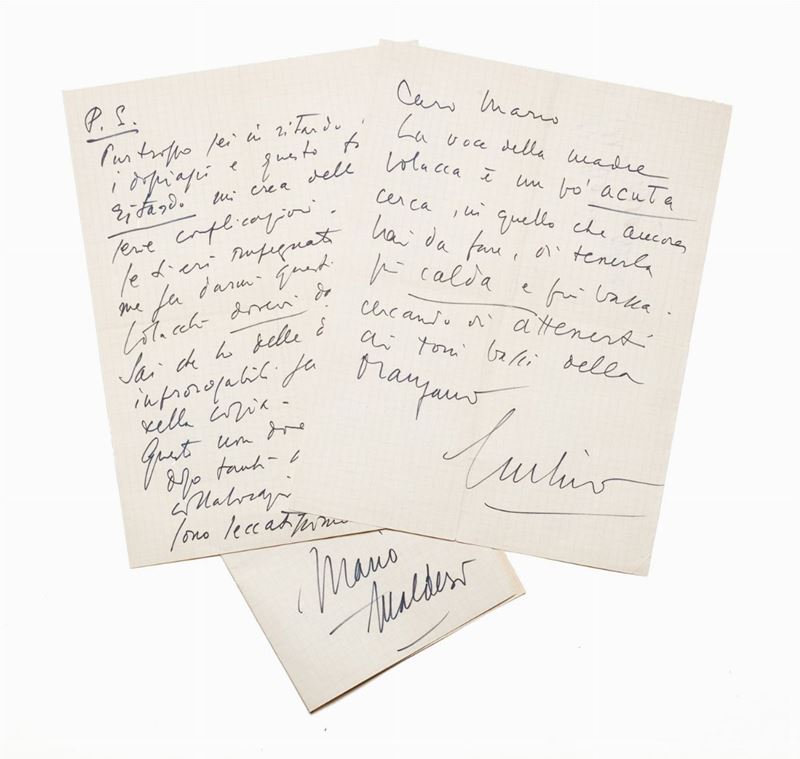 P. S.
Purtroppo sei in ritardo
i doppiaggi e questo
ritardo mi crea delle
serie complicazioni.
Se ti eri impegnato
me per darmi questi
dovevi
Sai che ho delle
improrogabili per
nella copia -
Questi non
dopo tanti
collaborazi
Sono seccatissimo
Caro Mario
La voce della madre
bolacca è un po' acuta
cerca, in quello che ancora
hai da fare, di tenerla
più calda e più bassa.
cercando di attenerti
ai toni bassi della
Mangano
Luchino
Mario
Maldesi